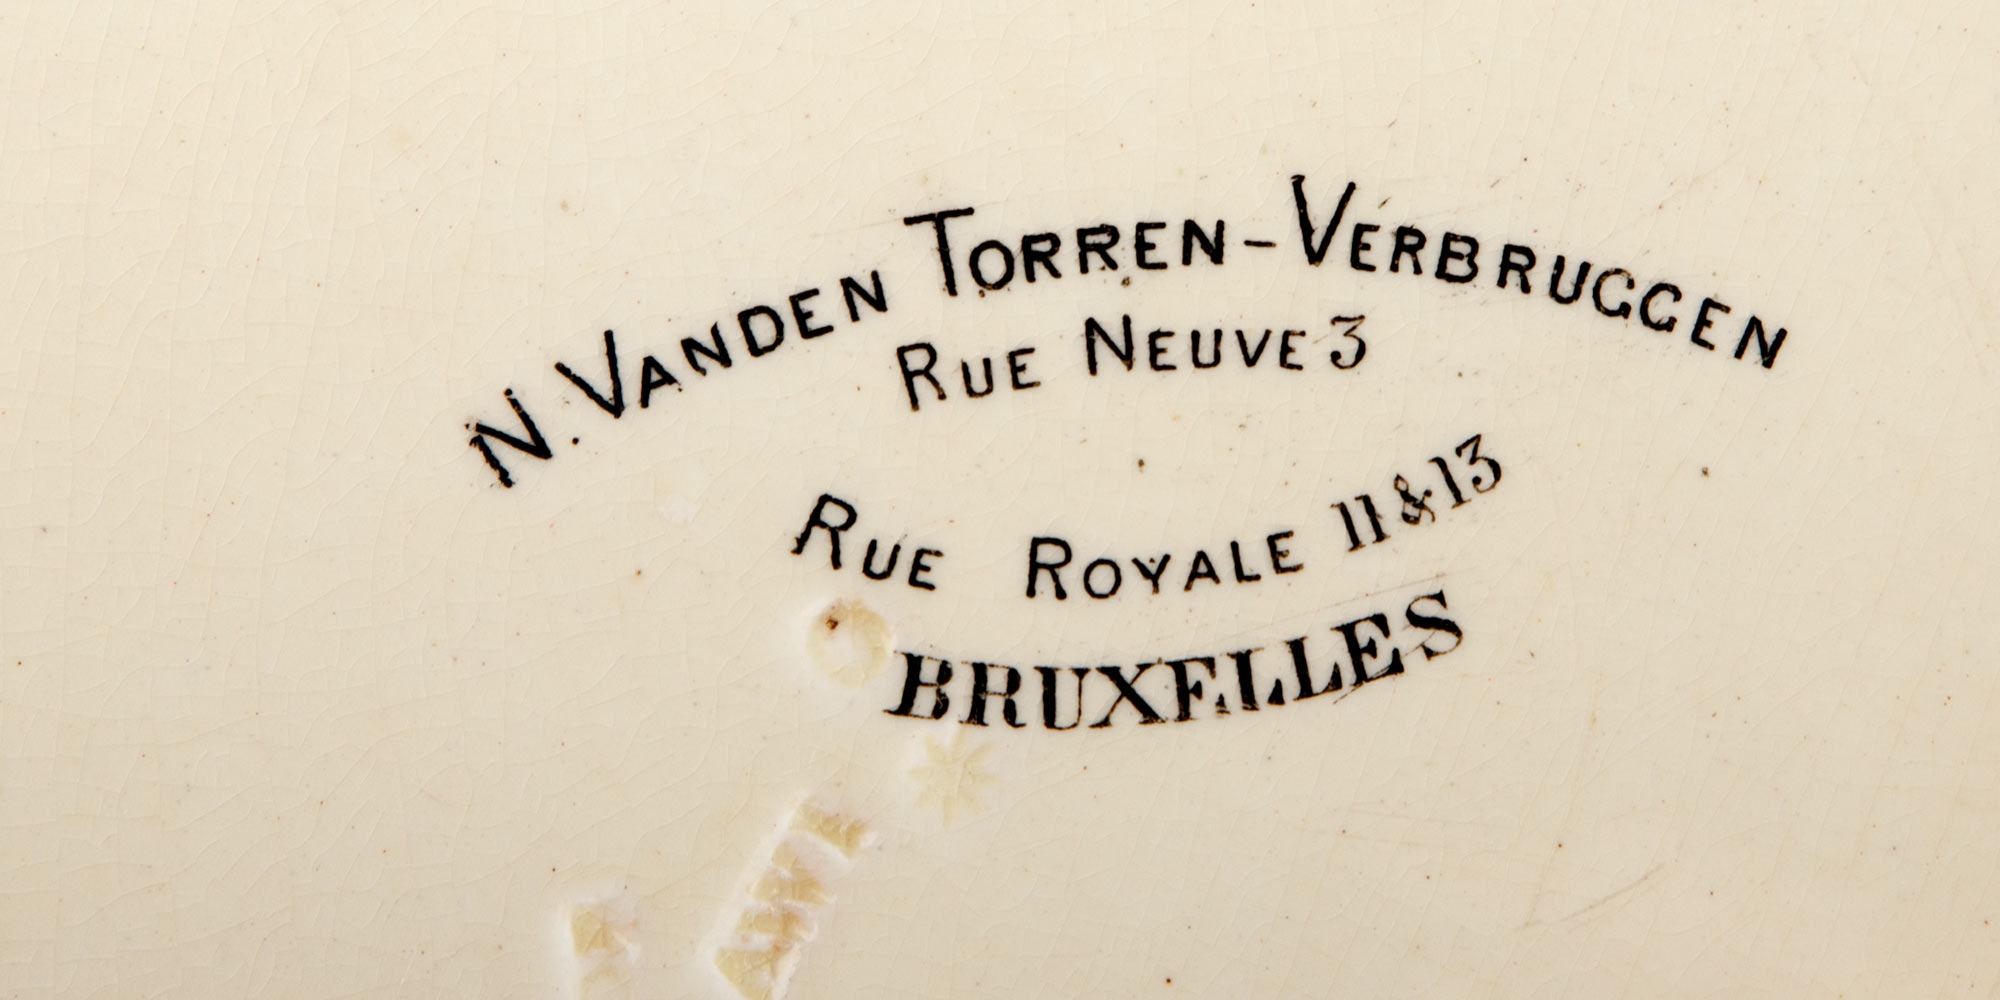 N. VANDEN TORREN-VERBRUGGEN
RUE NEUVE 3
RUE ROYALE 11 & 13
BRUXELLES